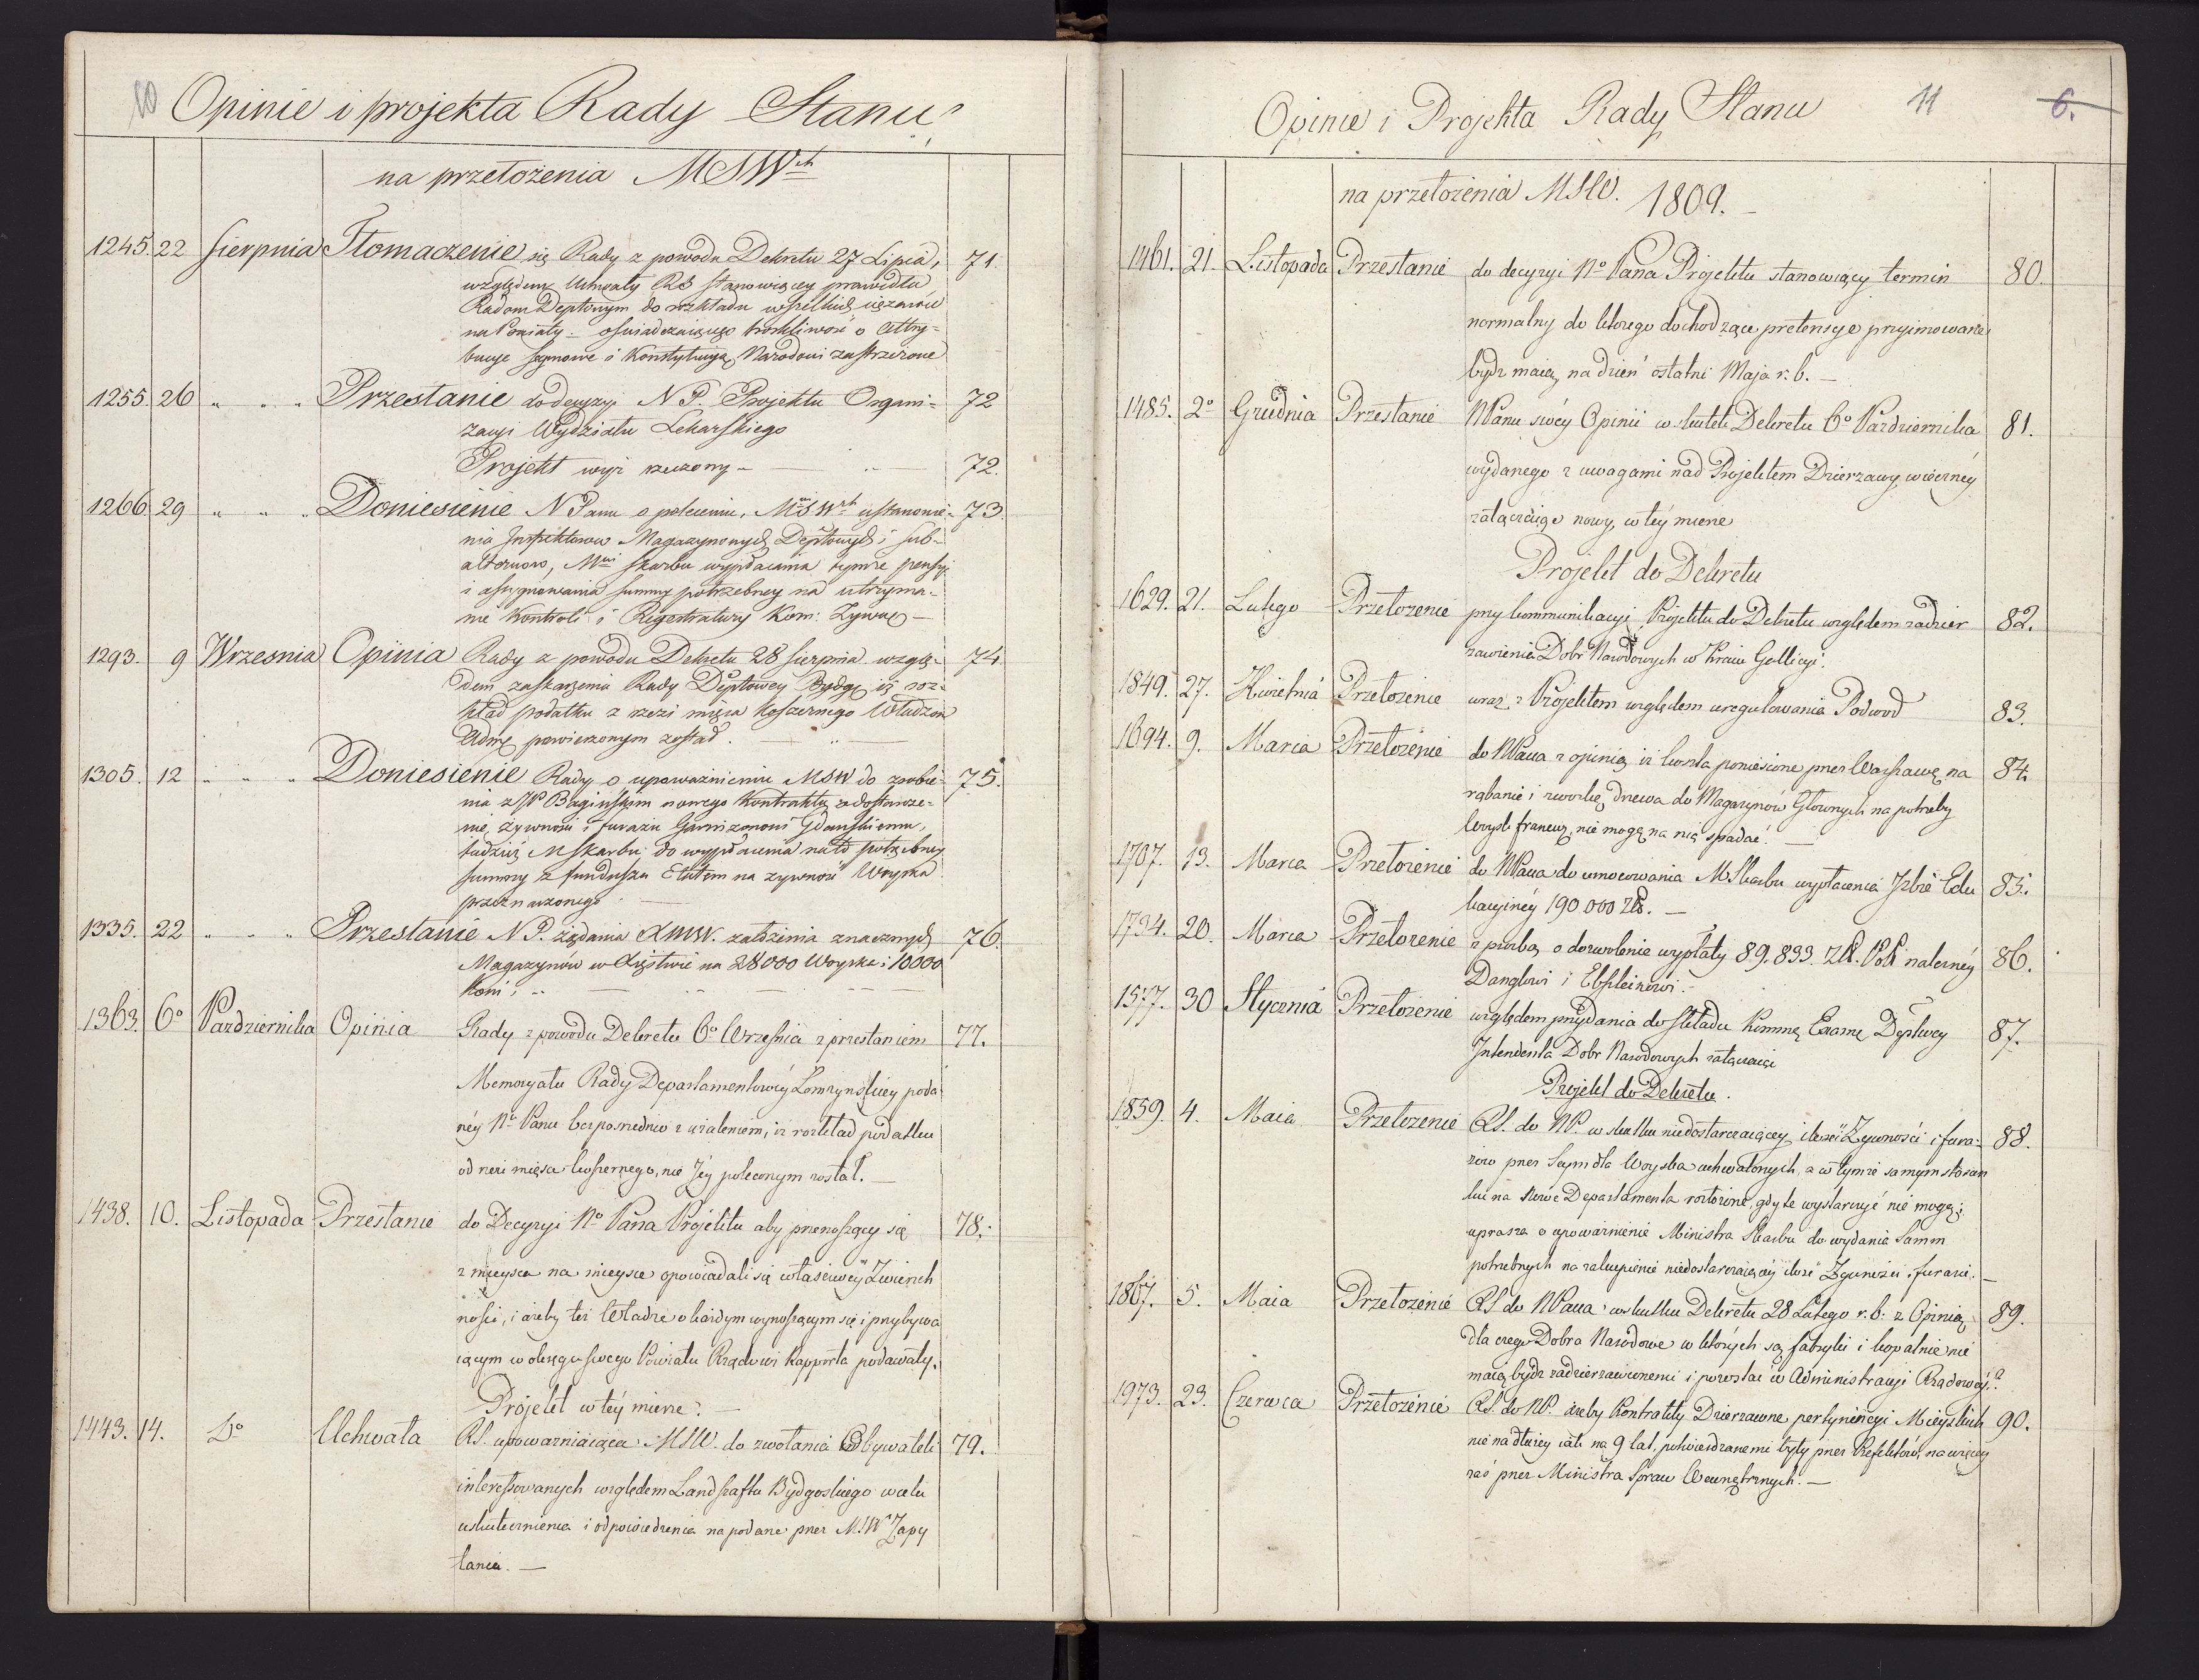 10 Opinie i projekta Rady Stanu
na przełożenia MSWch
1245. 22 Sierpnia Tłomaczenie się Rady z powodu Dekretu 27 Lipca, 71.
względem Uchwały RS stanowiącey prawidła
Radom Deptowym do rozkładu wszelkich ciężarów
na Powiaty - oświadczaiącego troskliwość o Attry=
bucye Seymowe i Konstytucyą Narodowi zastrzeżone
1255. 26 " " " Przesłanie do decyzyi N P. Projektu Organi= 72
zacyi Wydziału Lekarskiego
Projekt wyż rzeczony - — " — 72.
1266. 29 " " " Doniesienie N Panu o poleceniu, MowiSWch ustanowie= 73.
nia Inspektorow Magazynowych Deptowych i Sub=
alternow, Mwi Skarbu wypłacania tymże pensyi
i assygnowania summy potrzebney na utrzyma=
nie Kontroli i Registratury Kom: Zywney —
1293. 9 Wrzesnia Opinia Rady z powodu Dekretu 28 Sierpnia wzglę= 74.
dem zaskarżenia Rady Deptowey Bydg iż roz=
kład podatku z rzezi mięsa koszernego Władzom
Admę powierzonym został. — " —
1305. 12 " " " Doniesienie Rady o upoważnieniu MSW do zrobie= 75.
nia z JP Bagińskim nowego Kontraktu o dostawie=
nie żywności i furażu Garnizonowi Gdańskiemu,
tudzież M Skarbu do wypłacenia na to potrzebney
summy z funduszu Etatem na zywność Woyska
przeznaczonego —
1335. 22 " " " Przesłanie N P. żądania XMW. założenia znacznych 76.
Magazynów w Xięstwie na 28000 Woyska i 10000
Koni; " — " — —
1363. 6o Pazdziernika Opinia Rady z powodu Dekretu 6o Września z przesłaniem 77.
Memoryału Rady Departamentowéy Łomzynskiey poda
néy No Panu bezposrednio z użaleniem, iż rozkład podatku
od rzezi mięsa koszernego, nie Jéy poleconym został. —
1438. 10. Listopada Przesłanie do Decyzyi No Pana Projektu aby przenoszący się 78.
z mieysca na mieysce opowiadali się właściwéy Zwierzch
ności, i ażeby też Władze o każdym wynoszącym się i przybywa
iącym w okręgu swego Powiatu Rządowi Rapporta podawały.
Projekt w téy mierze. —
1443. 14. Do Uchwała RS. upoważniaiąca MSW. do zwołania Obywateli 79.
interessowanych względem Landszaftu Bydgoskiego w celu
uskutecznienia i odpowiedzenia na podane przez MSW Zapy
tania. —
Opinie i Projekta Rady Stanu 11 6.
na przełożenia MSW. 1809. —
1461. 21. Listopada Przesłanie do decyzyi No Pana Projektu stanowiący termin 80.
normalny do którego dochodzące pretensye przyimowane
bydź maią, na dzień ostatni Maja r. b. —
1485. 2o Grudnia Przesłanie NPanu swéy Opinii w skutek Dekretu 6o Pazdziernika 81.
wydanego z uwagami nad Projektem Dzierzawy wieczney
załączaiąc nowy, w téy mierze
Projekt do Dekretu
1629. 21. Lutego Przełożenie przy kommunikacyi Projektu do Dekretu względem zadzier 82.
zawienia Dobr Narodowych w Kraiu Gallicyi.
1849. 27. Kwietnia Przełożenie wraz z Projektem względem uregulowania Podwod 83.
1694. 9. Marca Przełożenie do NPana z opinią iż koszta poniesione przez Warszawę na 84.
rąbanie i zwozkę drzewa do Magazynów Głownych na potrzeby
Woysk francuz. nie mogą na nią spadać. —
1707. 13. Marca Przełożenie do NPana do umocowania MSkarbu wypłacenia Izbie Edu 85.
kacyinéy 190 000 Zł. —
1734. 20. Marca Przełożenie z prozbą o dozwolenie wypłaty 89.833. Zł. Pol: nalezney 86.
Danglowi i Ebsteinowi. —
1577. 30 Stycznia Przełożenie względem przydania do składu Kommę Examę Deptwey 87.
Intendenta Dobr Narodowych załączaiąc
Projekt do Dekretu.
1859. 4. Maia Przełożenie RS. do NP. w skutku niedostarczaiącey ilości Zywności i fura: 88.
zow przez Seym dla Woyska uchwalonych, a w tymże samym stosun
ku na Nowe Departamenta rozłozone, gdy te wystarczyć nie mogą;
uprasza o upoważnienie Ministra Skarbu do wydania Summ
potrzebnych na zakupienie niedostarczaiącéy ilość Zywności i furazu. —
1867. 5. Maia Przełożenie RS. do NPana w skutku Dekretu 28 Lutego r. b. z Opinią 89.
dla czego Dobra Narodowe w których są fabryki i kopalnie nie
maią bydź zadzierzawionemi i pozostać w Administracyi Rządowéy?
1973. 23. Czerwca Przełożenie RS. do NP. ażeby Kontrakty Dzierzawne pertynencyi Mieyskich 90.
nie na dłużey iak na 9 lat, potwierdzanemi były przez Prefektów, na więcey
zaś przez Ministra Spraw Wewnętrznych. —